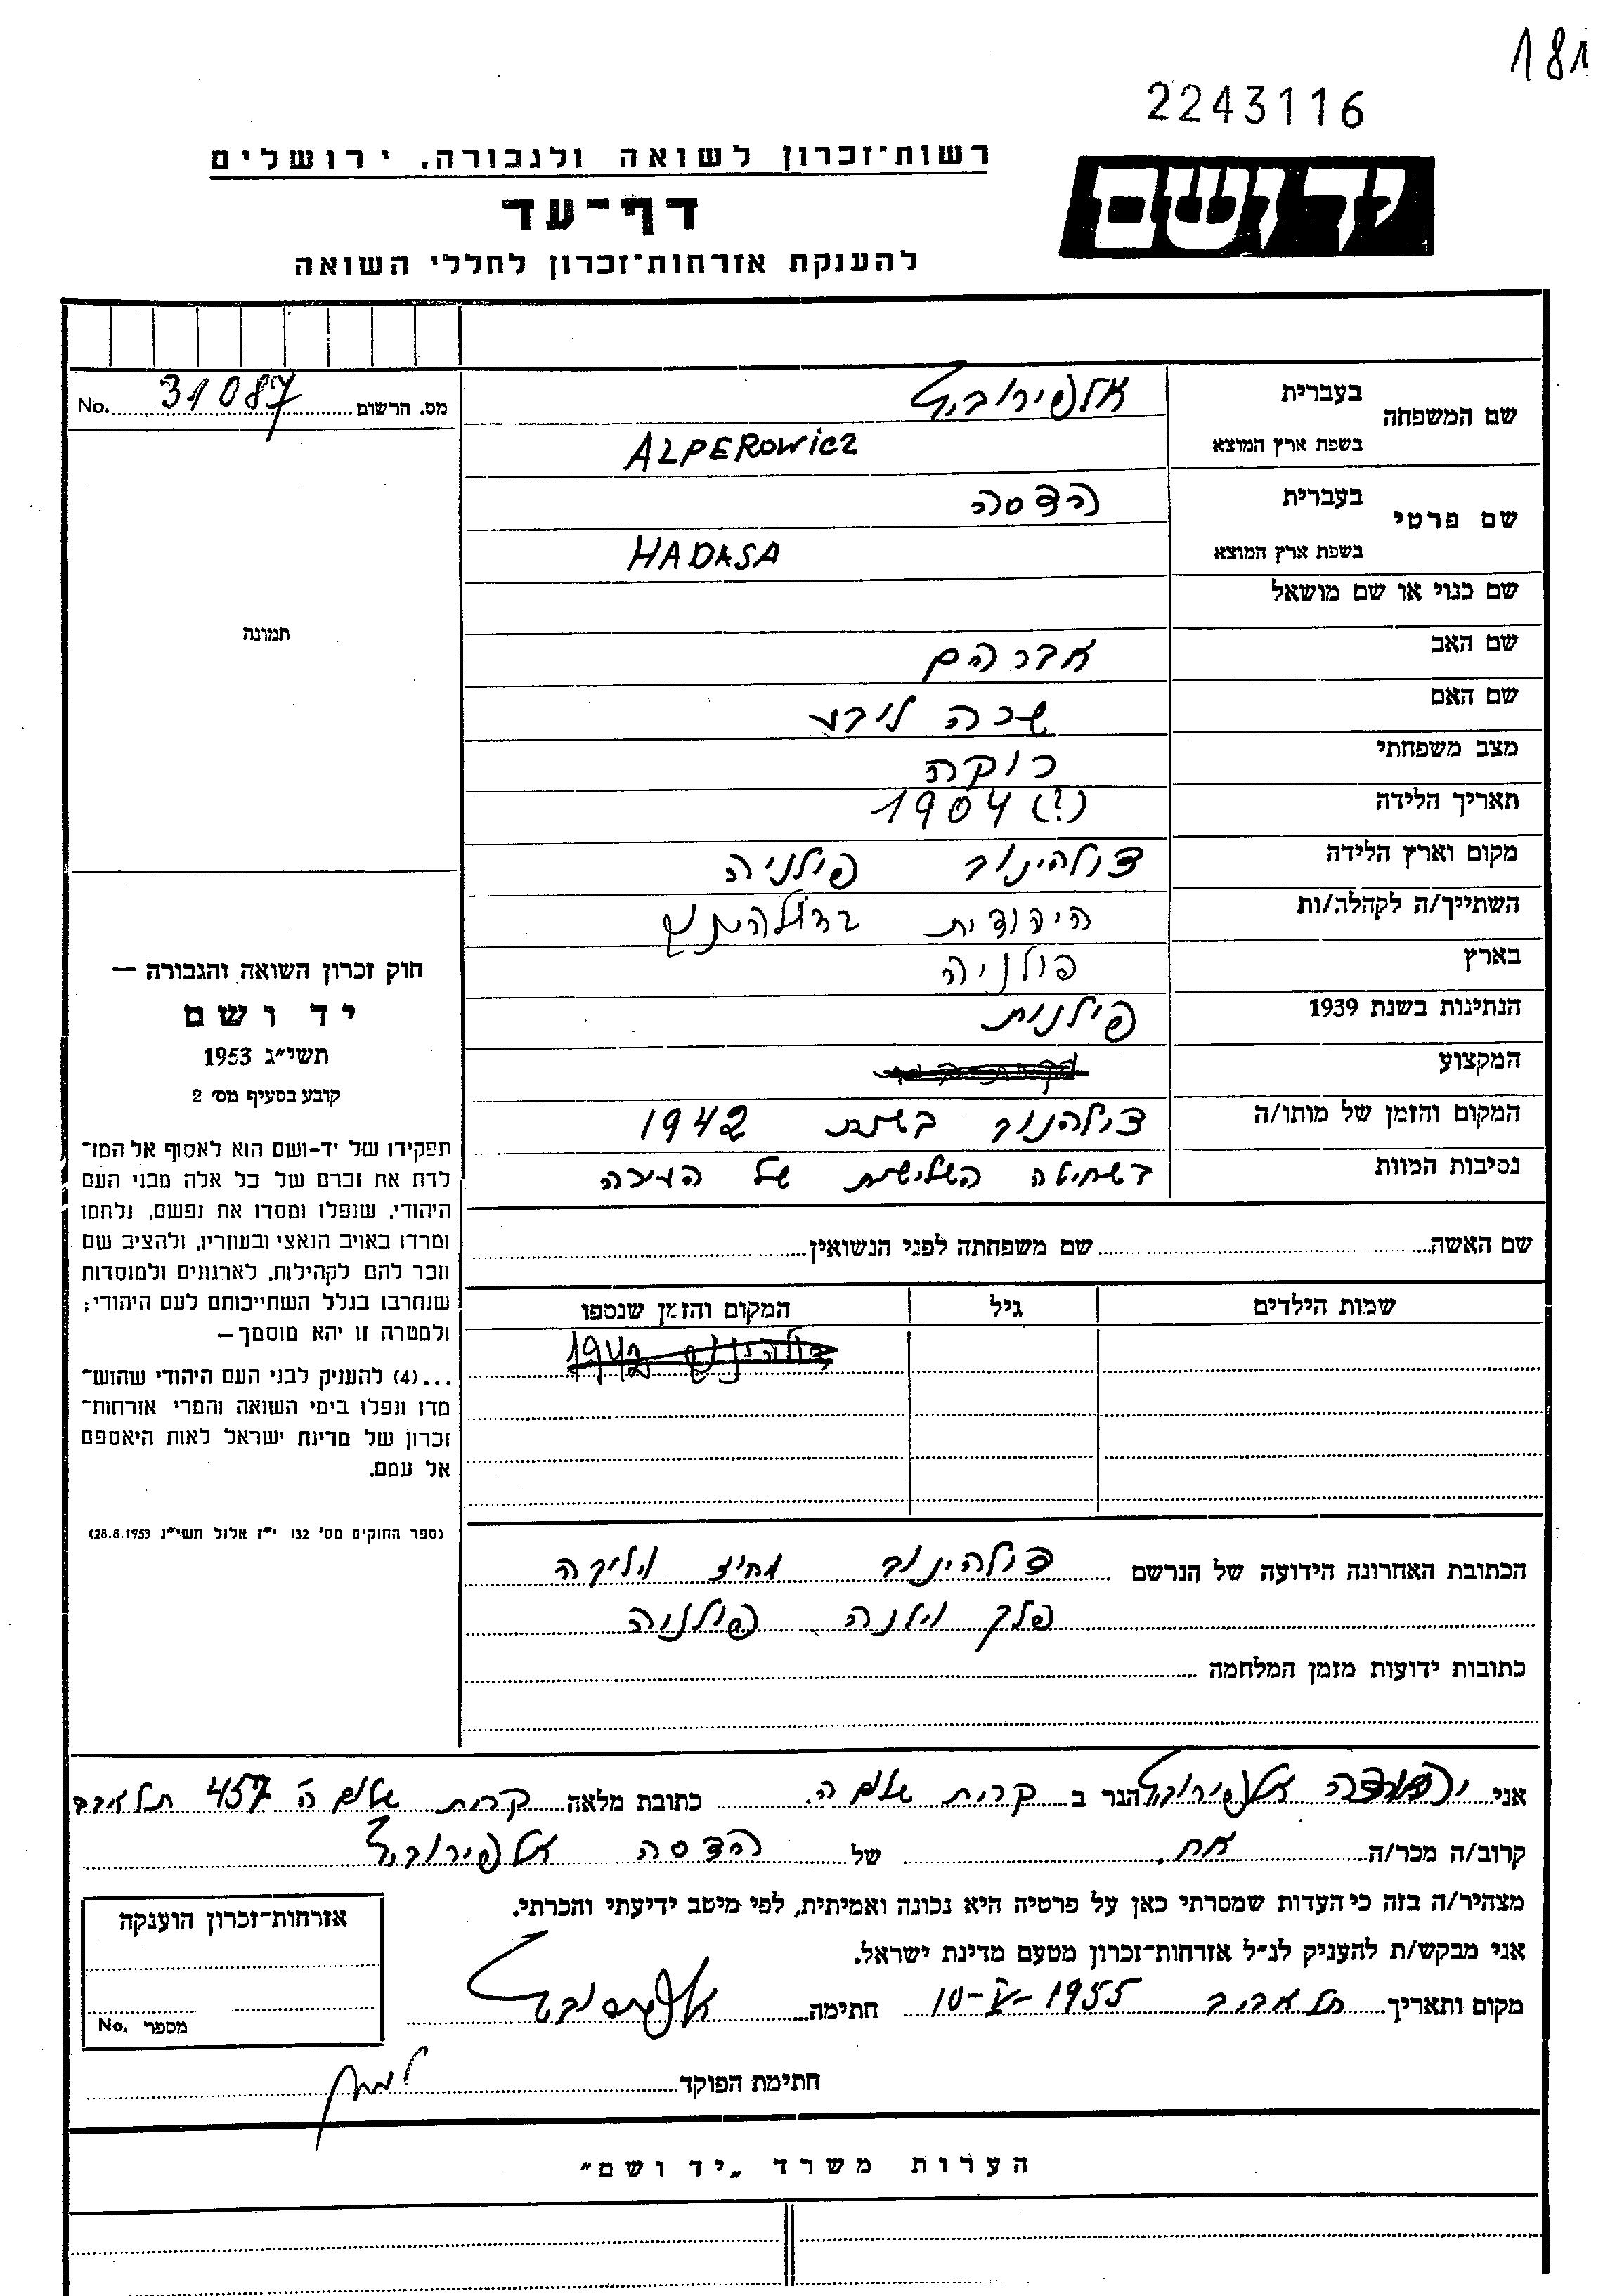 181
2243116
ידושם
רשות־זכרון לשואה ולגבורה, ירושלים
דף־עד
להענקת אזרחות־זכרון לחללי השואה
מס. הרשום 31087 No.
שם המשפחה
בעברית אלפירוביץ
בשפת ארץ המוצא ALPEROWICZ
שם פרטי
בעברית הדסה
בשפת ארץ המוצא HADASA
שם כנוי או שם מושאל
שם האב אברהם
שם האם שרה ליבע
מצב משפחתי רווקה
תאריך הלידה 1904 (?)
מקום וארץ הלידה דולהינוב פולניה
השתייך/ה לקהלה/ות היהודית בדולהינוב
בארץ פולניה
הנתינות בשנת 1939 פולנית
המקצוע
המקום והזמן של מותו/ה דולהנוב בשנת 1942
נסיבות המוות בשחיטה השלישית של העירה
תמונה
חוק זכרון השואה והגבורה —
יד ושם
תשי״ג 1953
קובע בסעיף מס׳ 2
תפקידו של יד-ושם הוא לאסוף אל המו־
לדת את זכרם של כל אלה מבני העם
היהודי, שנפלו ומסרו את נפשם, נלחמו
ומרדו באויב הנאצי ובעוזריו, ולהציב שם
וזכר להם לקהילות, לארגונים ולמוסדות
שנחרבו בגלל השתייכותם לעם היהודי;
ולמטרה זו יהא מוסמך—
...(4) להעניק לבני העם היהודי שהוש־
מדו ונפלו בימי השואה והמרי אזרחות־
זכרון של מדינת ישראל לאות היאספם
אל עמם.
(ספר החוקים מס׳ 132 י״ז אלול תשי״ג 28.8.1953)
שם האשה שם משפחתה לפני הנשואין
שמות הילדים גיל המקום והזמן שנספו
דולהינוב 1942
הכתובת האחרונה הידועה של הנרשם דולהינוב מחוז וילייקה
פלך וילנה פולניה
כתובות ידועות מזמן המלחמה
אני יהודה אלפירוביץ הגר ב קרית שלום ה. כתובת מלאה קרית שלום ה 457 תל אביב
קרוב/ה מכר/ה אח של הדסה אלפירוביץ
מצהיר/ה בזה כי העדות שמסרתי כאן על פרטיה היא נכונה ואמיתית, לפי מיטב ידיעתי והכרתי.
אני מבקש/ת להעניק לנ״ל אזרחות־זכרון מטעם מדינת ישראל.
מקום ותאריך תל אביב 10-V-1955 חתימה אלפירוביץ
אזרחות־זכרון הוענקה
מספר No.
חתימת הפוקד
הערות משרד „יד ושם״